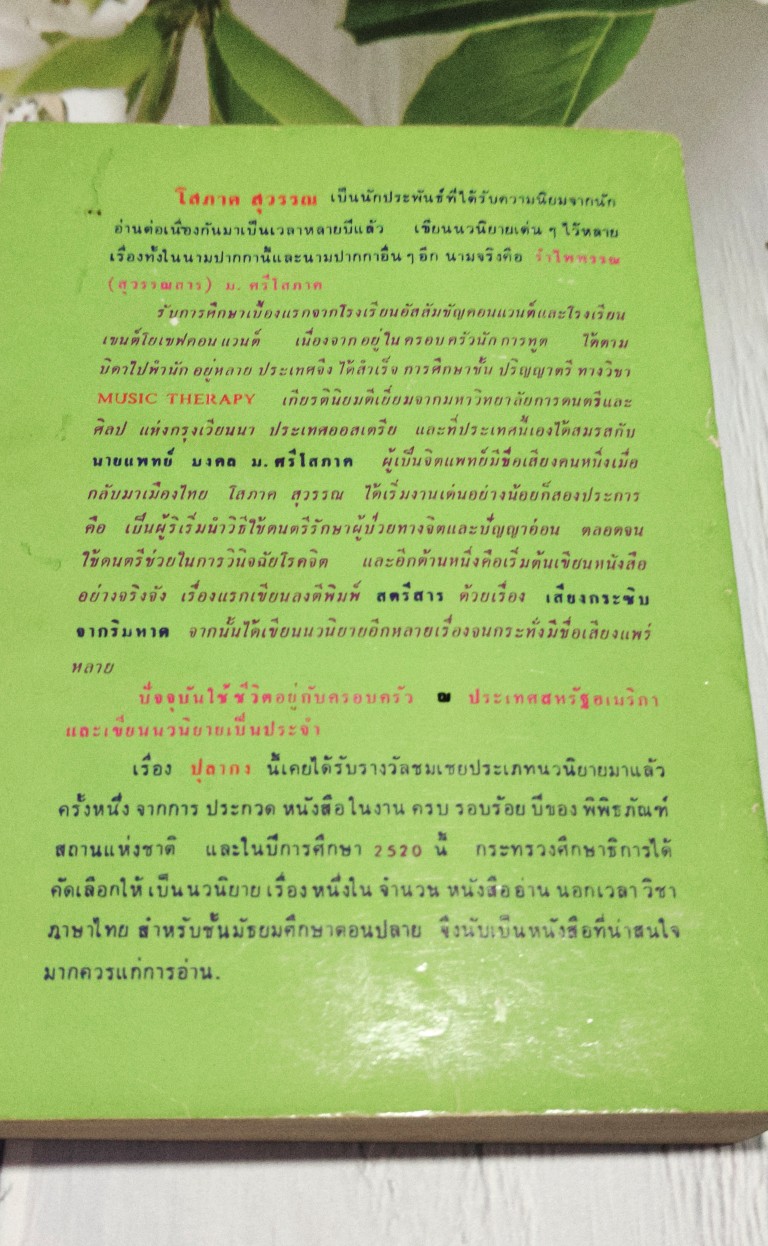 โสภาค สุวรรณ เป็นนักประพันธ์ที่ได้รับความนิยมจากนัก
อ่านต่อเนื่องกันมาเป็นเวลาหลายปีแล้ว เขียนนวนิยายเด่น ๆ ไว้หลาย
เรื่องทั้งในนามปากกานี้และนามปากกาอื่น ๆ อีก นามจริงคือ รำไพพรรณ
(สุวรรณสาร) ม. ศรีโสภาค
รับการศึกษาเบื้องแรกจากโรงเรียนอัสสัมชัญคอนแวนต์และโรงเรียน
เซนต์โยเซฟคอนแวนต์ เนื่องจากอยู่ในครอบครัวนักการทูต ได้ตาม
บิดาไปพำนักอยู่หลายประเทศจึงได้สำเร็จการศึกษาชั้นปริญญาตรีทางวิชา
MUSIC THERAPY เกียรตินิยมดีเยี่ยมจากมหาวิทยาลัยการดนตรีและ
ศิลป แห่งกรุงเวียนนา ประเทศออสเตรีย และที่ประเทศนี้เองได้สมรสกับ
นายแพทย์ มงคล ม. ศรีโสภาค ผู้เป็นจิตแพทย์มีชื่อเสียงคนหนึ่งเมื่อ
กลับมาเมืองไทย โสภาค สุวรรณ ได้เริ่มงานเด่นอย่างน้อยก็สองประการ
คือ เป็นผู้ริเริ่มนำวิธีใช้ดนตรีรักษาผู้ป่วยทางจิตและปัญญาอ่อน ตลอดจน
ใช้ดนตรีช่วยในการวินิจฉัยโรคจิต และอีกด้านหนึ่งคือเริ่มต้นเขียนหนังสือ
อย่างจริงจัง เรื่องแรกเขียนลงตีพิมพ์ สตรีสาร ด้วยเรื่อง เสียงกระซิบ
จากริมหาด จากนั้นได้เขียนนวนิยายอีกหลายเรื่องจนกระทั่งมีชื่อเสียงแพร่
หลาย
ปัจจุบันใช้ชีวิตอยู่กับครอบครัว ณ ประเทศสหรัฐอเมริกา
และเขียนนวนิยายเป็นประจำ
เรื่อง ปุลากง นี้เคยได้รับรางวัลชมเชยประเภทนวนิยายมาแล้ว
ครั้งหนึ่ง จากการ ประกวด หนังสือ ในงาน ครบ รอบร้อย ปีของ พิพิธภัณฑ์
สถานแห่งชาติ และในปีการศึกษา 2520 นี้ กระทรวงศึกษาธิการได้
คัดเลือกให้ เป็นนวนิยาย เรื่อง หนึ่งใน จำนวน หนังสืออ่าน นอกเวลา วิชา
ภาษาไทย สำหรับชั้นมัธยมศึกษาตอนปลาย จึงนับเป็นหนังสือที่น่าสนใจ
มากควรแก่การอ่าน.